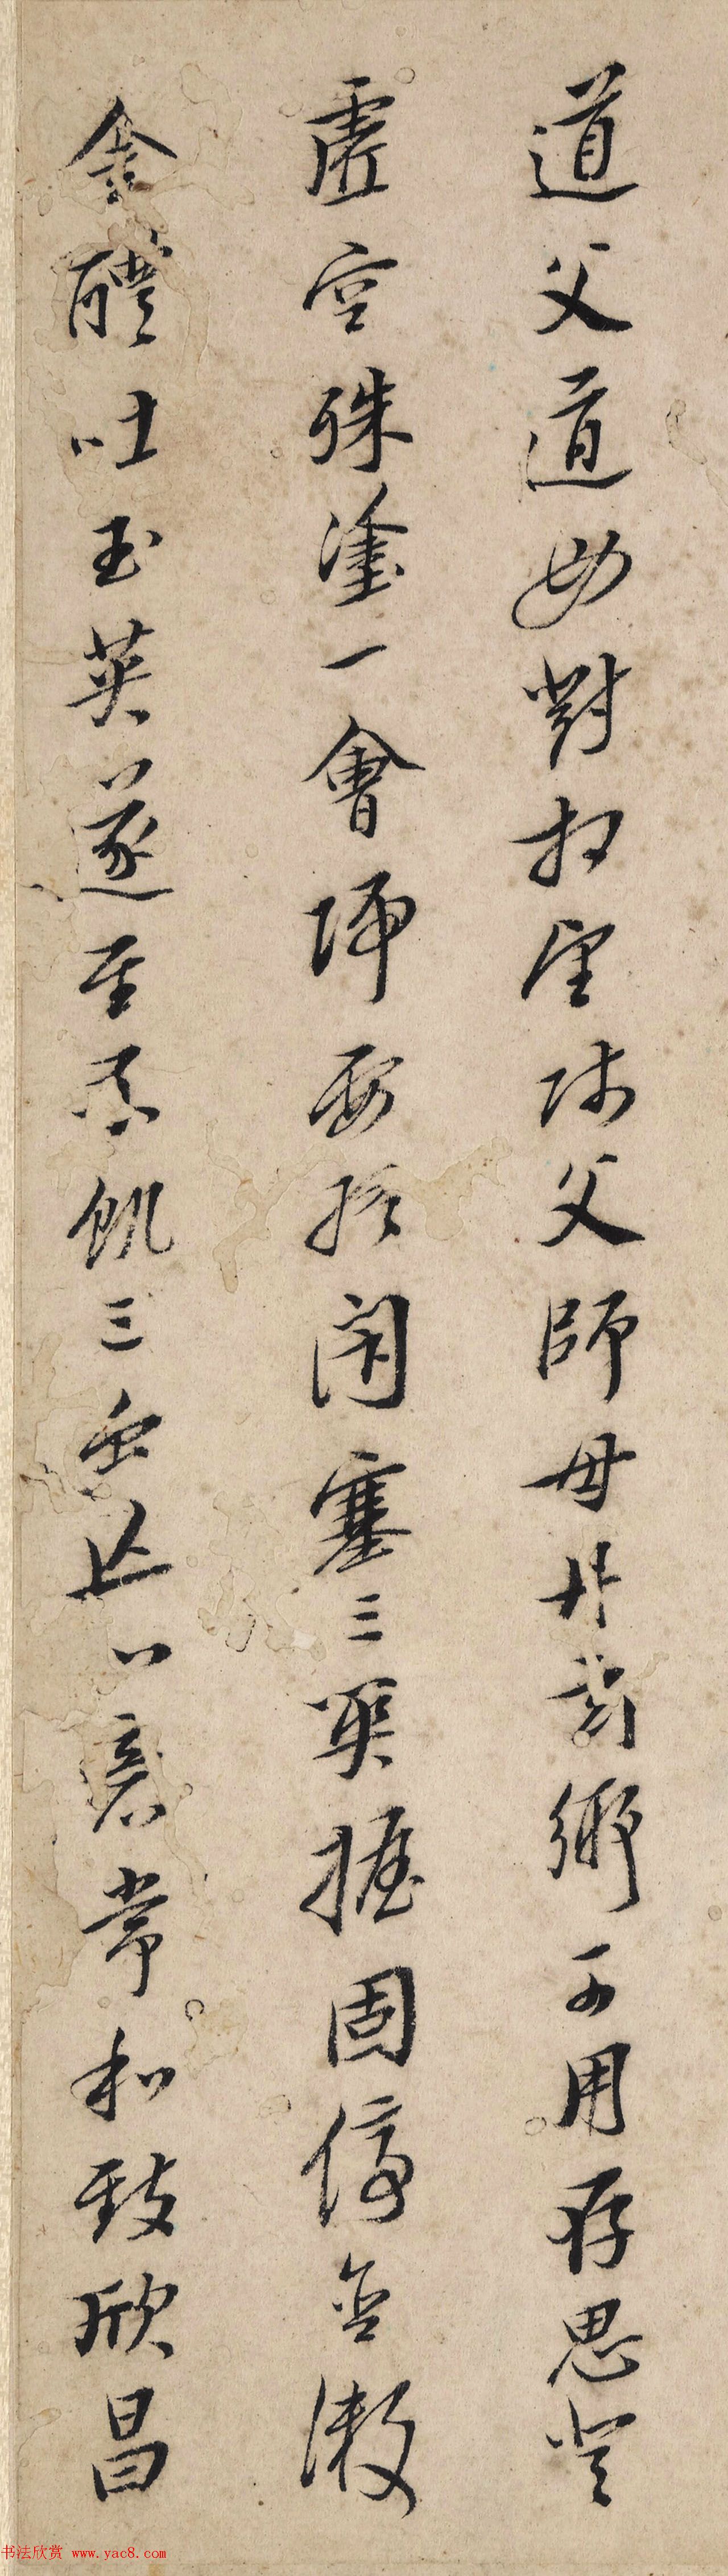 道父道母對相望師父師母丹玄鄉可用存思登
虛空殊塗一會歸要終閉塞三關握固停含漱
金醴吐玉英遂至不飢三蟲亡心意常和致欣昌
书法欣赏 www.yac8.com